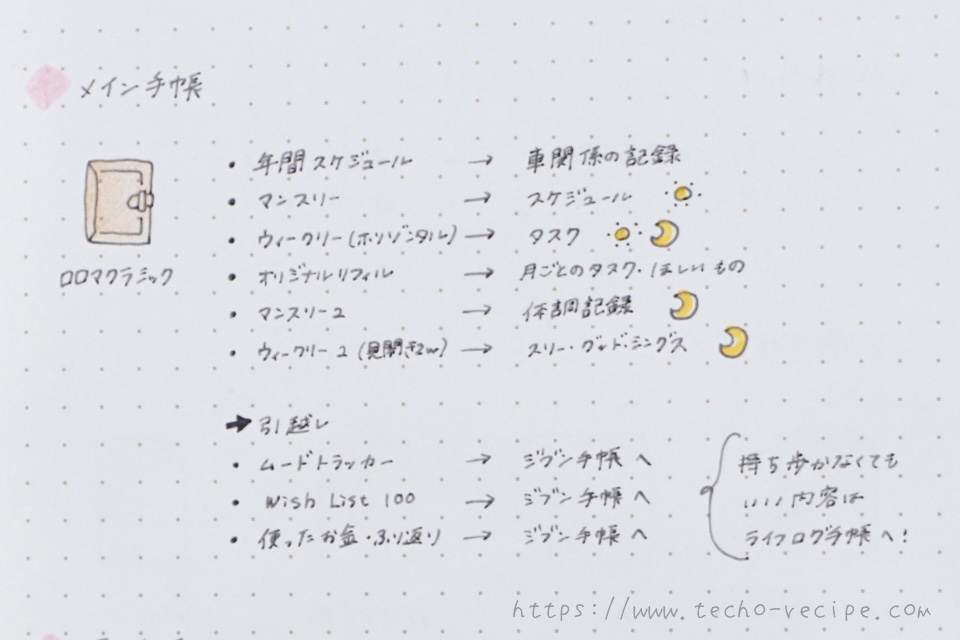 メイン手帳
・年間スケジュール → 車関係の記録
・マンスリー → スケジュール
・ウィークリー(ホリゾンタル) → タスク
・オリジナルリフィル → 月ごとのタスク・ほしいもの
ロロマクラシック
・マンスリー2 → 体調記録
・ウィークリー2(見開き2w) → スリー・グッド・シングス
➡引越し
・ムードトラッカー → ジブン手帳へ
・Wish List 100 → ジブン手帳へ
・使ったお金・ふり返り → ジブン手帳へ
持ち歩かなくても
いい内容は
ライフログ手帳へ!
https://www.techo-recipe.com